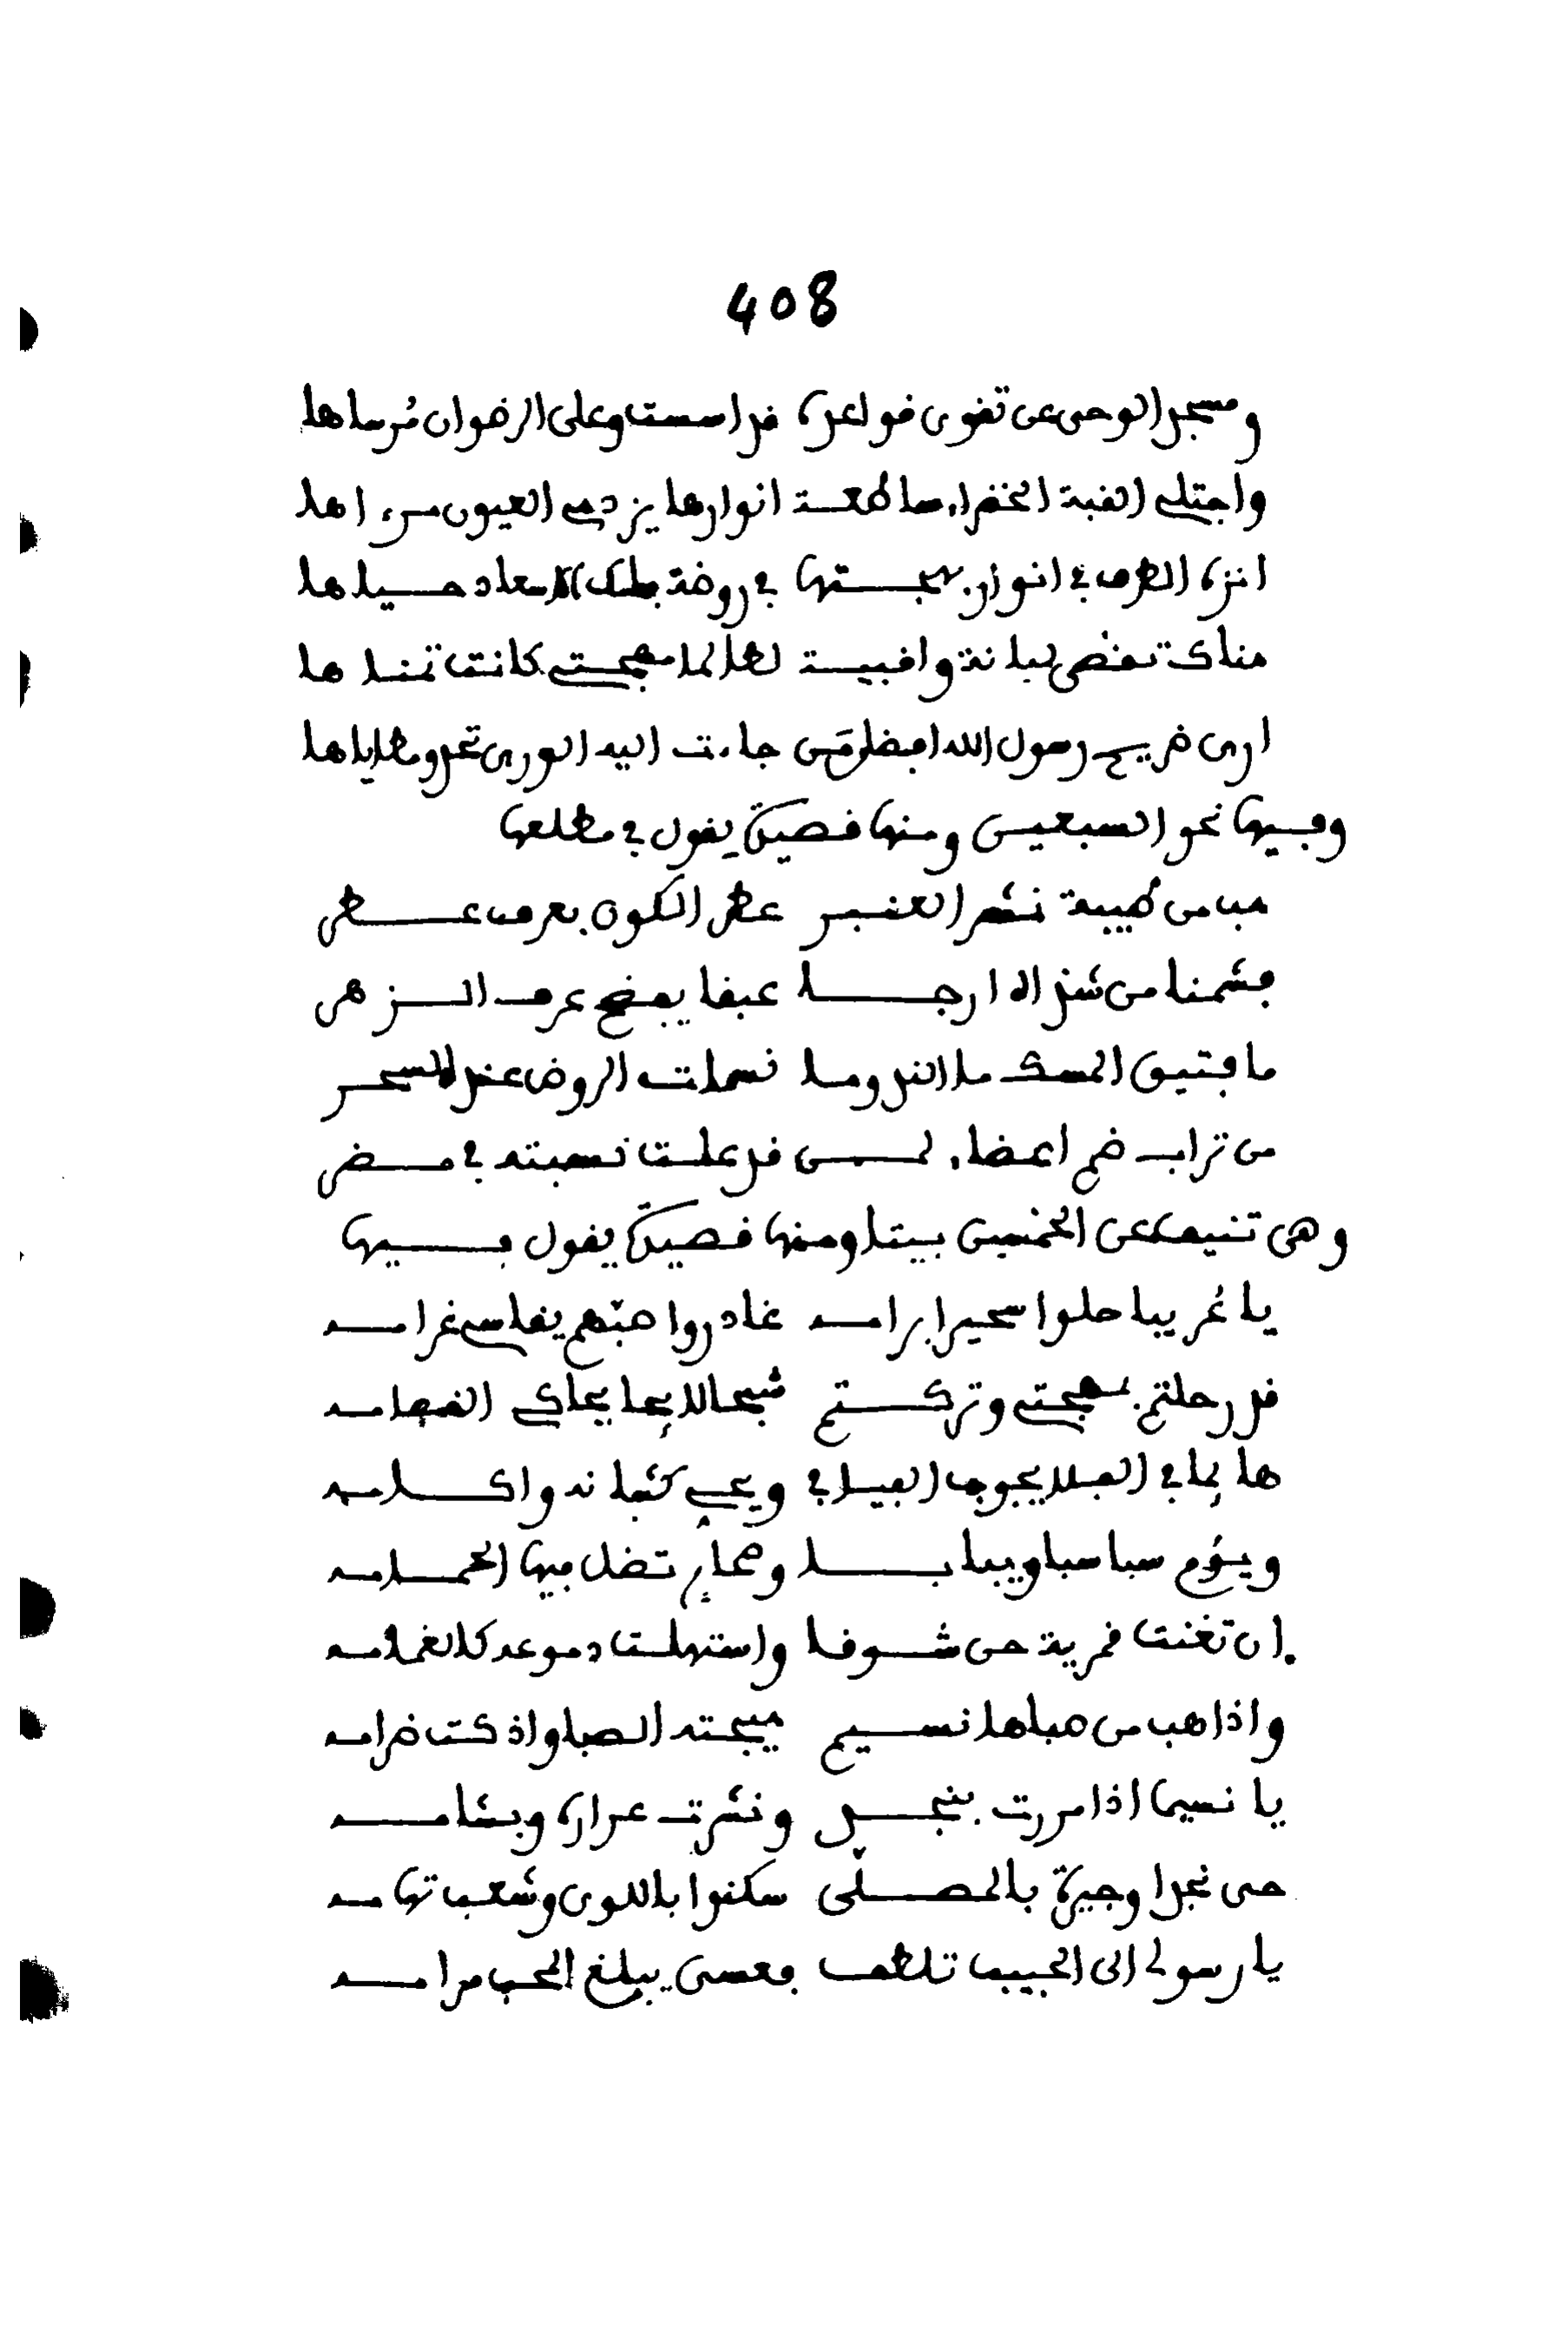 408
ومسجد الوحي عن تقوى قواعده قد اسست وعلى الرضوان مُرساها
واجتلي القبة الخضراء ساطعة انوارها يزدهي العيون مرءاها
انزه الطرف في انوار بهجتها في روضة بملك الاسعاد حسياها
هناك تقضى لبانة وافيية لها لما مهجتي كانت تمناها
ارى ضريح رسول الله افضل مَن جاءت اليه الورى تحدو مطاياها
وفيها نحو السبعين ومنها قصيدة يقول في مطلعها
هب من طيبة نشر العنبر عطر الكون بعرف عطر
فشممنا من شذاه ارجا عبقا يفضح عرف الزهر
ما فتيق المسك ما الند وما نسمات الروض عند السحر
من تراب ضم اعضاء لمن قد علت نسبته في مضر
وهي تنيف عن الخمسين بيتا ومنها قصيدة يقول فيها
يا عُريبا حلوا سحيرا برامه غادروا صبّهم يقاسي غرامه
قد رحلتم بمهجتي وتركتم شبحا لايعا يحاكي القمامه
هايما في الفلا يجوب الفيافي ويحي كثبانه واكامه
ويؤم سباسبا ويبابا وصحارٍ تضل فيها الحمامه
ان تغنت قمرية حن شوقا واستهلت دموعه كالغمامه
واذا هب من صباها نسيم هيجته الصبا واذكت ضرامه
يا نسيما اذا مررت بنجد ونشرت عراره وبشامه
حي نجدا وجيرة بالمصلى سكنوا باللوى وشعب تهامه
يا رسولي الى الحبيب تلطف فعسى يبلغ المحب مرامه